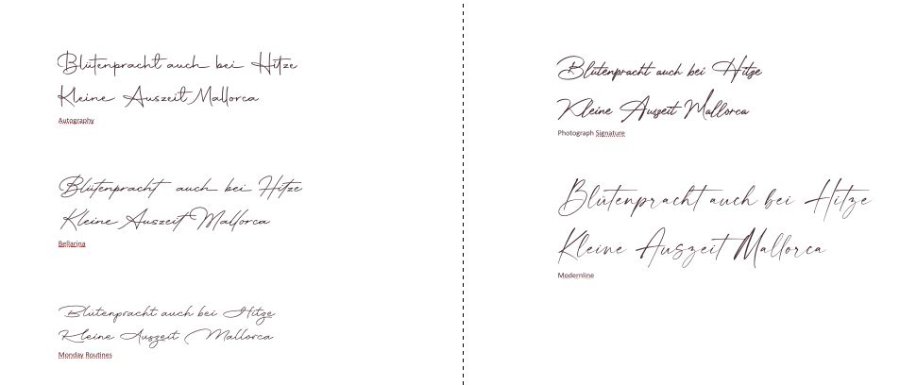 Blütenpracht auch bei Hitze
Kleine Auszeit Mallorca
Autography
Blütenpracht auch bei Hitze
Kleine Auszeit Mallorca
Bellarina
Blütenpracht auch bei Hitze
Kleine Auszeit Mallorca
Monday Routines
Blütenpracht auch bei Hitze
Kleine Auszeit Mallorca
Photograph Signature
Blütenpracht auch bei Hitze
Kleine Auszeit Mallorca
Modernline